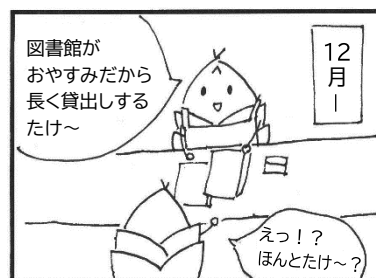 12月ー
図書館が
おやすみだから
長く貸出しする
たけ～
えっ！？
ほんとたけ～？